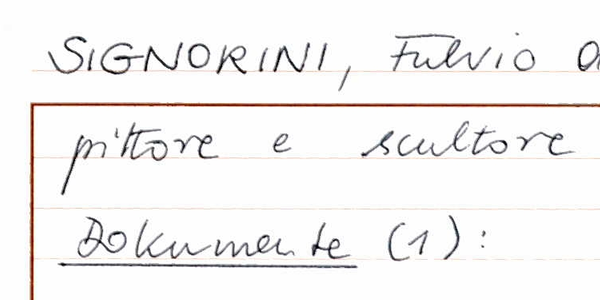 SIGNORINI, Fulvio
pittore e scultore
Dokumente (1):